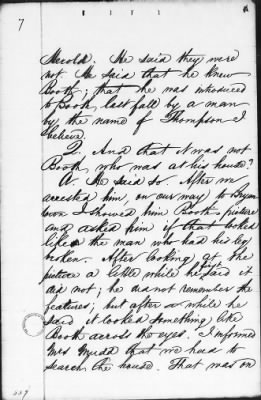 7
Herold. He said they were
not. He said that he knew
Booth; that he was introduced
to Booth last fall by a man
by the name of Thompson I
believe.
Q. And that it was not
Booth who was at his house?
A. He said so. After we
arrested him, on our way to Bryan-
town I showed him Booth's picture
and asked him if that looked
like the man who had his leg
broken. After looking at the
picture a little while he said it
did not; he did not remember the
features; but after a while he
said it looked something like
Booth across the eyes. I informed
Mrs Mudd that we had to
search the house. That was on